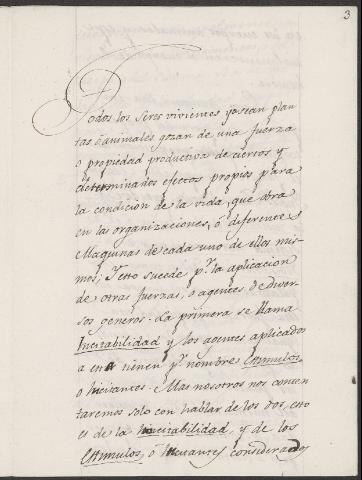 3
Todos los Seres vivientes ya sean plan
tas ó animales gozan de una fuerza
o propiedad productiva de ciertos y
determinados efectos propios para
la condicion de la vida, que obra
en las organizaciones, ó diferentes
Maquinas de cada uno de ellos mis-
mos; Y esto sucede pr. la aplicacion
de otras fuerzas, o agentes de diver-
sos generos. La primera se llama
Incitabilidad y los agentes aplicados
a esta tienen pr. nombre Estimulos
o Incitantes. Mas nosotros nos conten
taremos solo con hablar de los dos, esto
es de la Incitabilidad y de los
Estimulos, ó Incitantes considerados